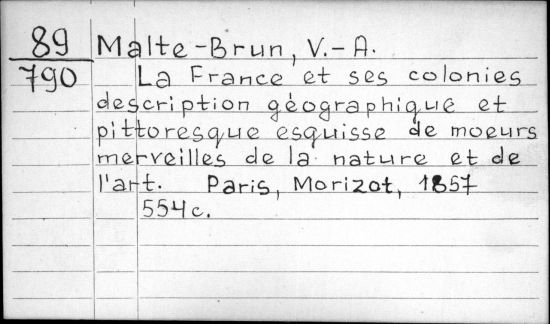 89 Malte-Brun, V.-A.
790 La France et ses colonies
description géographique et
pittoresque esquisse de moeurs
merveilles de la nature et de
l'art. Paris, Morizot, 1857
554 c.